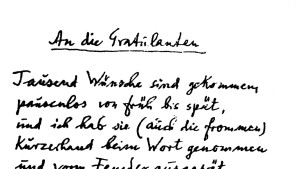 An die Gratulanten
Tausend Wünsche sind gekommen,
pausenlos von früh bis spät,
und ich hab sie (auch die frommen)
kurzerhand beim Wort genommen
und vorm Fenster ausgesät.